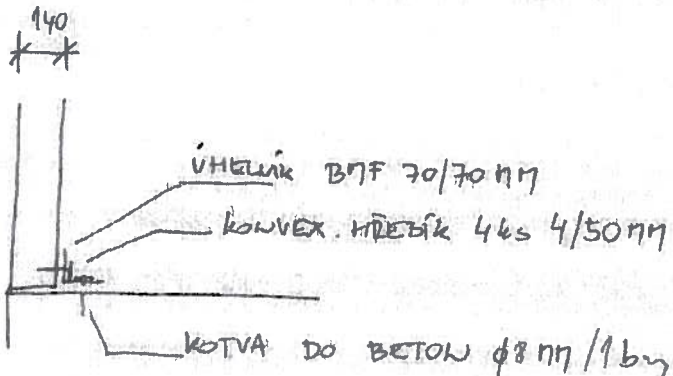 140
ÚHELNÍK BMF 70/70 mm
KONVEX. HŘEBÍK 4 ks 4/50 mm
KOTVA DO BETON ϕ8 mm /1 bm